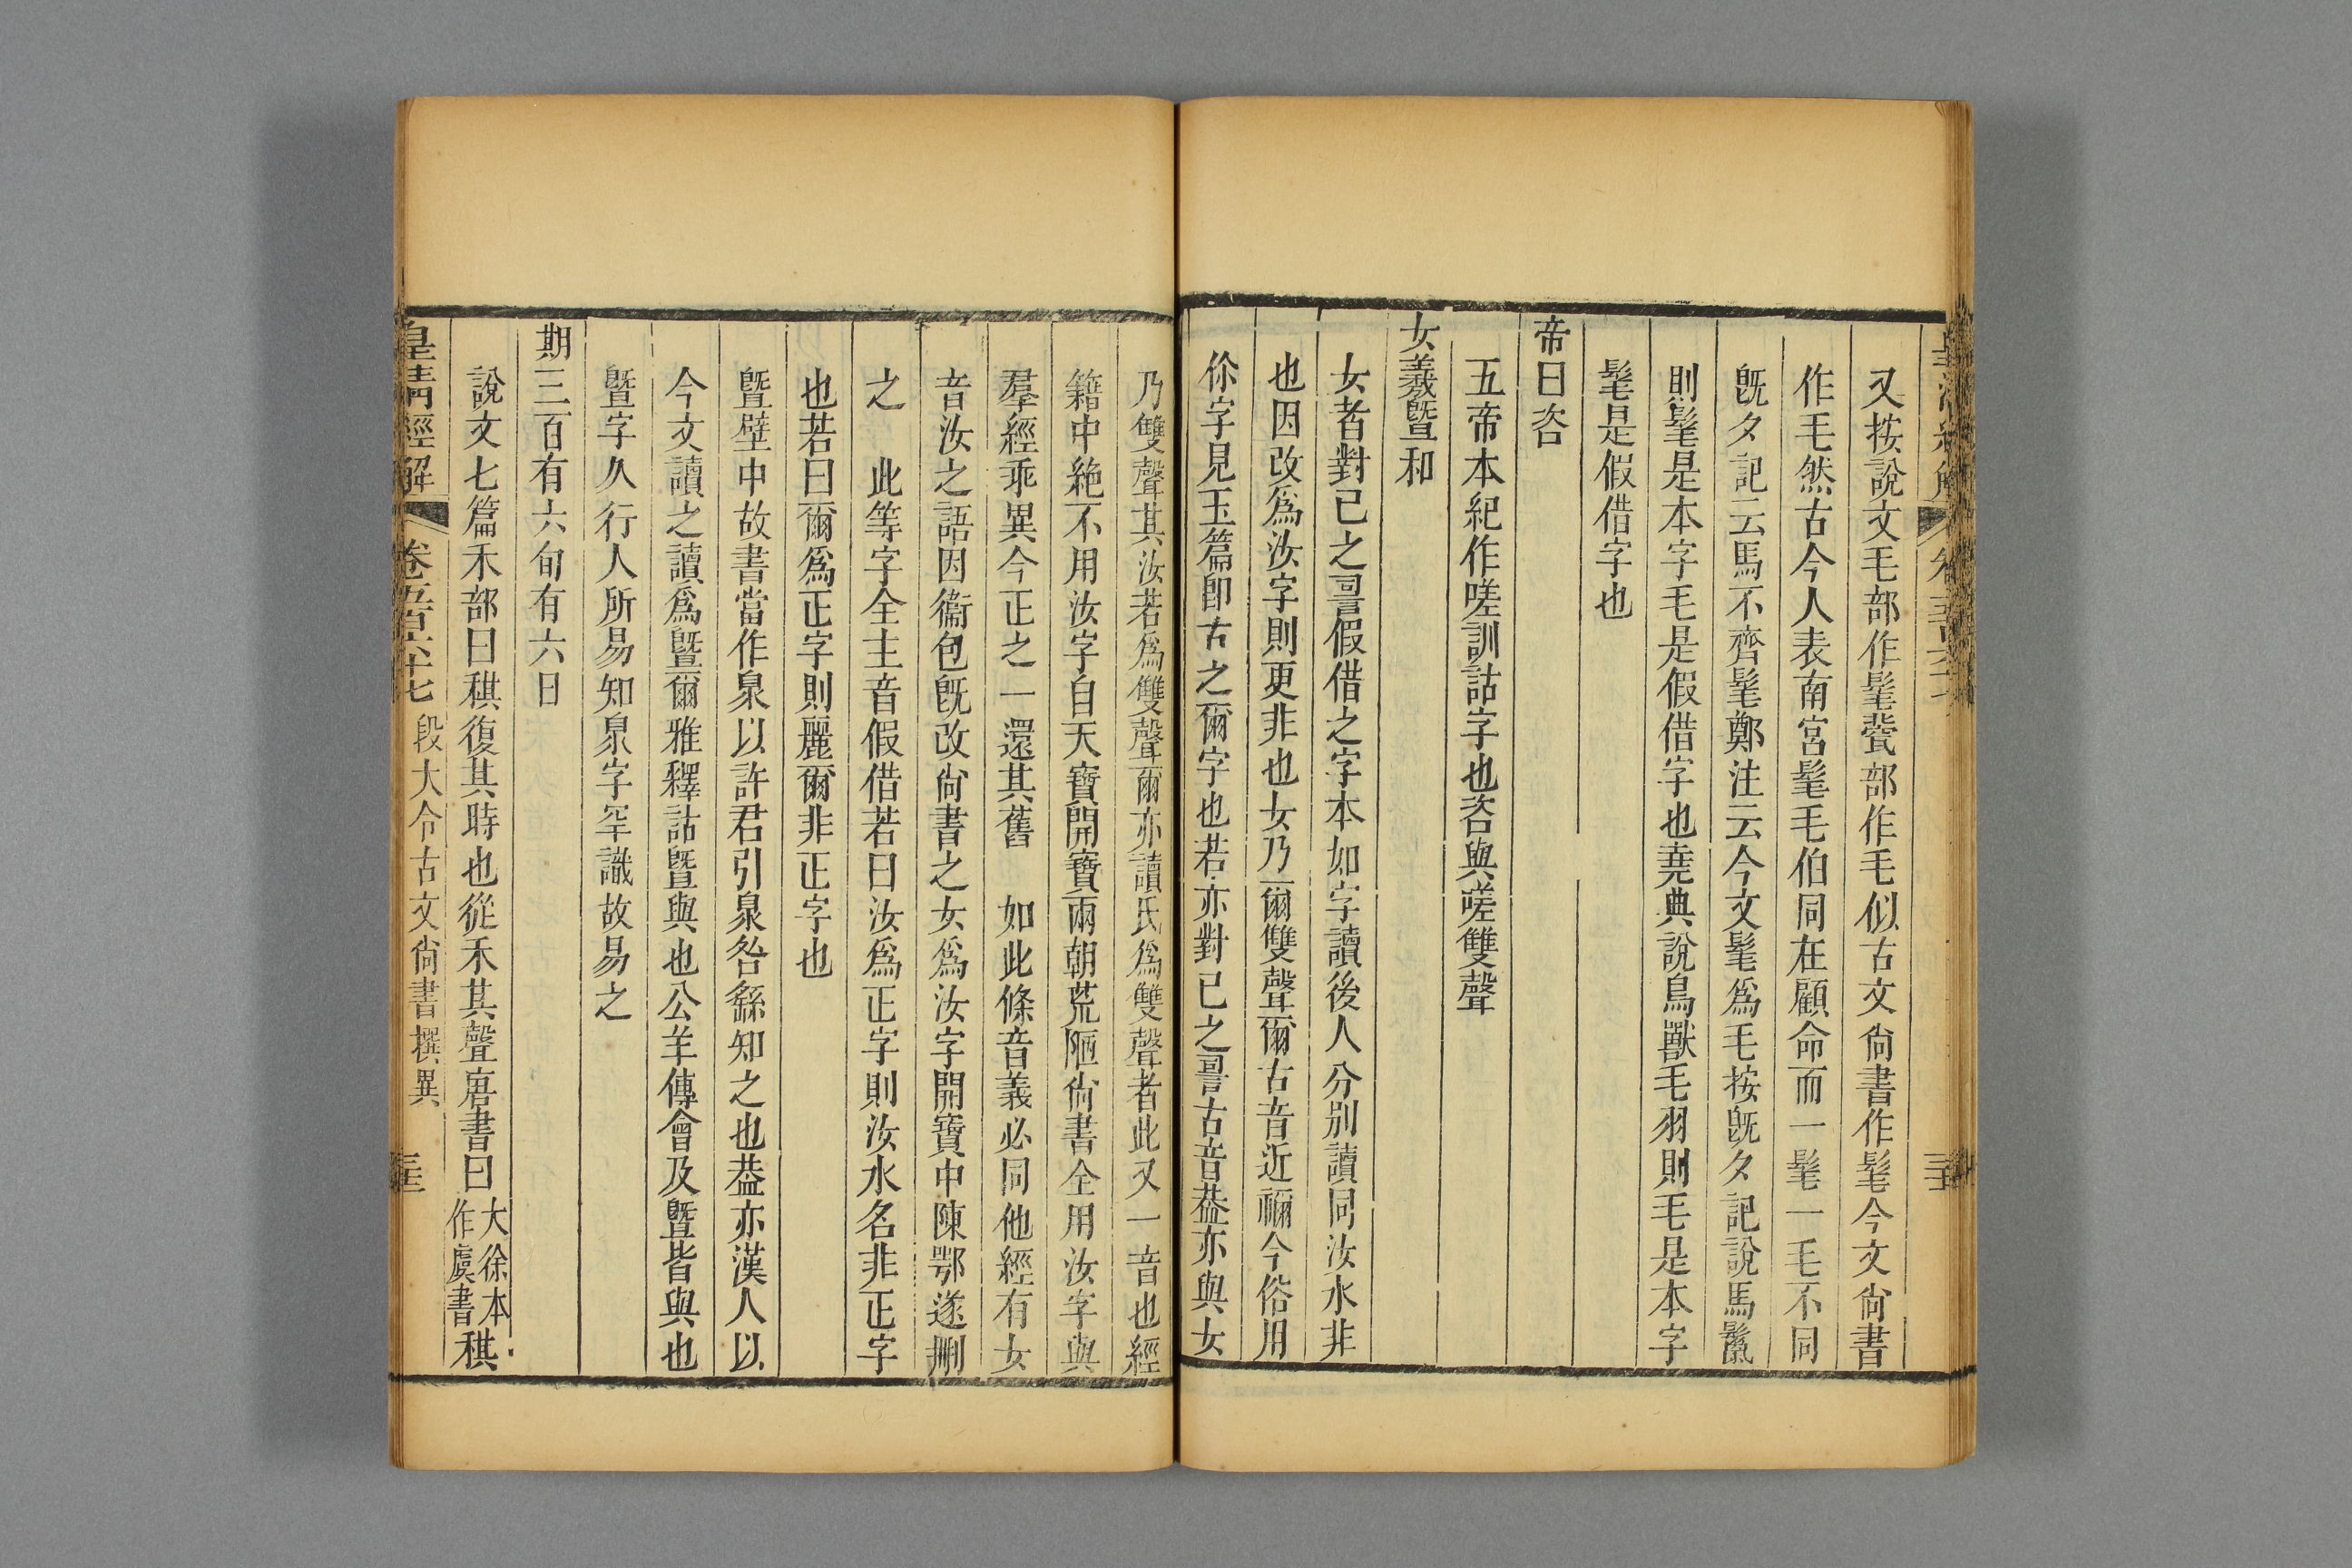 又按說文毛部作髦㲨部作毛似古文尙書作髦今文尙書
作毛然古今人表南宮髦毛伯同在顧命而一髦一毛不同
旣夕記云馬不齊髦鄭注云今文髦爲毛按旣夕記說馬鬣
則髦是本字毛是假借字也堯典說鳥獸毛羽則毛是本字
髦是假借字也
帝曰咨
五帝本紀作嗟訓詁字也咨與嗟雙聲
女羲曁和
女者對己之䛐假借之字本如字讀後人分別讀同汝水非
也因改爲汝字則更非也女乃爾雙聲爾古音近禰今俗用
伱字見玉篇卽古之爾字也若亦對己之䛐古音葢亦與女
乃雙聲其汝若爲雙聲爾亦讀氏爲雙聲者此又一音也經
籍中絶不用汝字自天寶開寶兩朝荒陋尙書全用汝字與
羣經乖異今正之一還其舊　如此條音義必同他經有女
音汝之語因衞包旣改尙書之女爲汝字開寶中陳鄂遂刪
之　此等字全主音假借若曰汝爲正字則汝水名非正字
也若曰爾爲正字則麗爾非正字也
曁壁中故書當作臮以許君引臮咎繇知之也葢亦漢人以
今文讀之讀爲曁爾雅釋詁曁與也公羊傳會及曁皆與也
曁字久行人所易知臮字罕識故易之
期三百有六旬有六日
說文七篇禾部曰稘復其時也從禾其聲唐書曰大徐本作虞書稘
皇淸經解　卷五百六十七　段大令古文尙書撰異